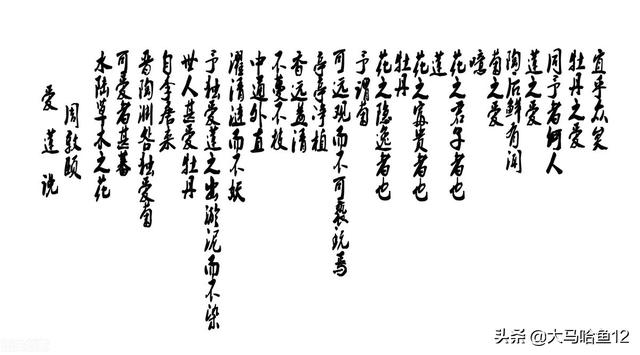 爱莲说
周敦颐
水陆草木之花
可爱者甚蕃
晋陶渊明独爱菊
自李唐来
世人甚爱牡丹
予独爱莲之出淤泥而不染
濯清涟而不妖
中通外直
不蔓不枝
香远益清
亭亭净植
可远观而不可亵玩焉
予谓菊
花之隐逸者也
牡丹
花之富贵者也
莲
花之君子者也
噫
菊之爱
陶后鲜有闻
莲之爱
同予者何人
牡丹之爱
宜乎众矣
头条 @大马哈鱼12